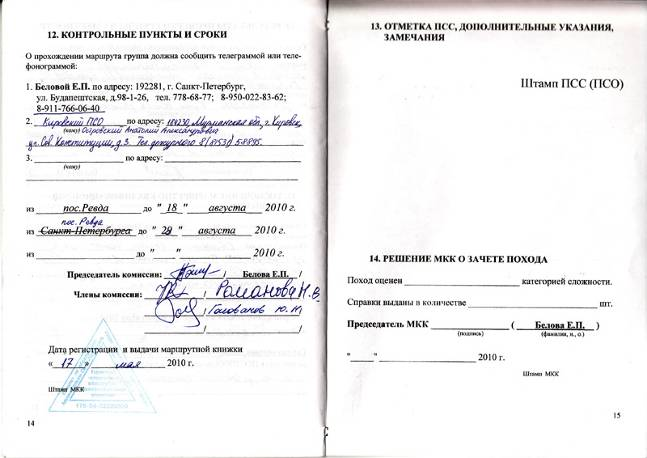 12. КОНТРОЛЬНЫЕ ПУНКТЫ И СРОКИ
О прохождении маршрута группа должна сообщить телеграммой или теле-
фонограммой:
1. Беловой Е.П. по адресу: 192281, г. Санкт-Петербург,
ул. Будапештская, д.98-1-26, тел. 778-68-77; 8-950-022-83-62;
8-911-766-06-40
2. Кировский ПСО по адресу: 184230, Мурманская обл, г. Кировск,
(кому) Островский Анатолий Александрович
ул. Сов. Конституции, д.3. Тел. дежурного 8(81531) 58895.
3. по адресу:
(кому)
из пос.Ревда до "18" августа 2010 г.
пос. Ревда
из Санкт-Петербурга до " " августа 2010 г.
из до " " 2010 г.
Председатель комиссии: / Белова Е.П. /
Члены комиссии: / Романова Н.В
/ Голованов Ю.М
Дата регистрации и выдачи маршрутной книжки
«17» мая 2010 г.
Штамп МКК
14
13. ОТМЕТКА ПСС, ДОПОЛНИТЕЛЬНЫЕ УКАЗАНИЯ,
ЗАМЕЧАНИЯ
Штамп ПСС (ПСО)
14. РЕШЕНИЕ МКК О ЗАЧЕТЕ ПОХОДА
Поход оценен категорией сложности.
Справки выданы в количестве шт.
Председатель МКК ( Белова Е.П. )
(подпись) (фамилия, и., о.)
" " 2010 г.
Штамп МКК
15